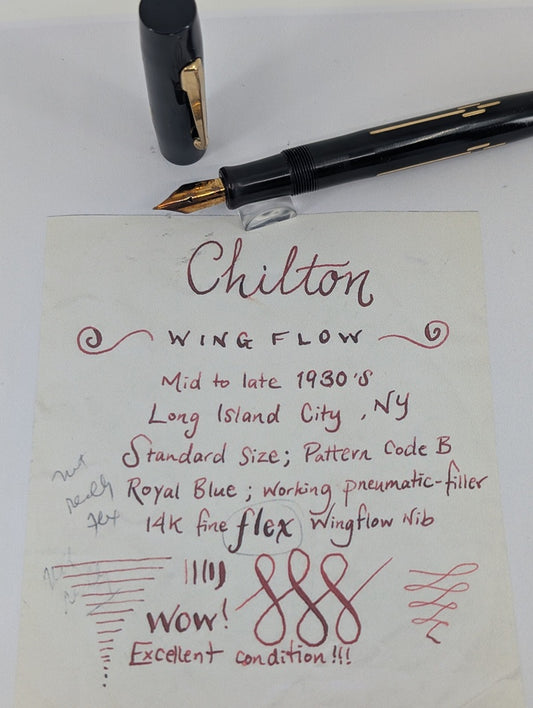 Chilton
WING FLOW
Mid to late 1930's
Long Island City, NY
Standard Size; Pattern Code B
Royal Blue; working pneumatic-filler
14K fine flex Wingflow Nib
not
really
flex
Wow!
Excellent condition!!!